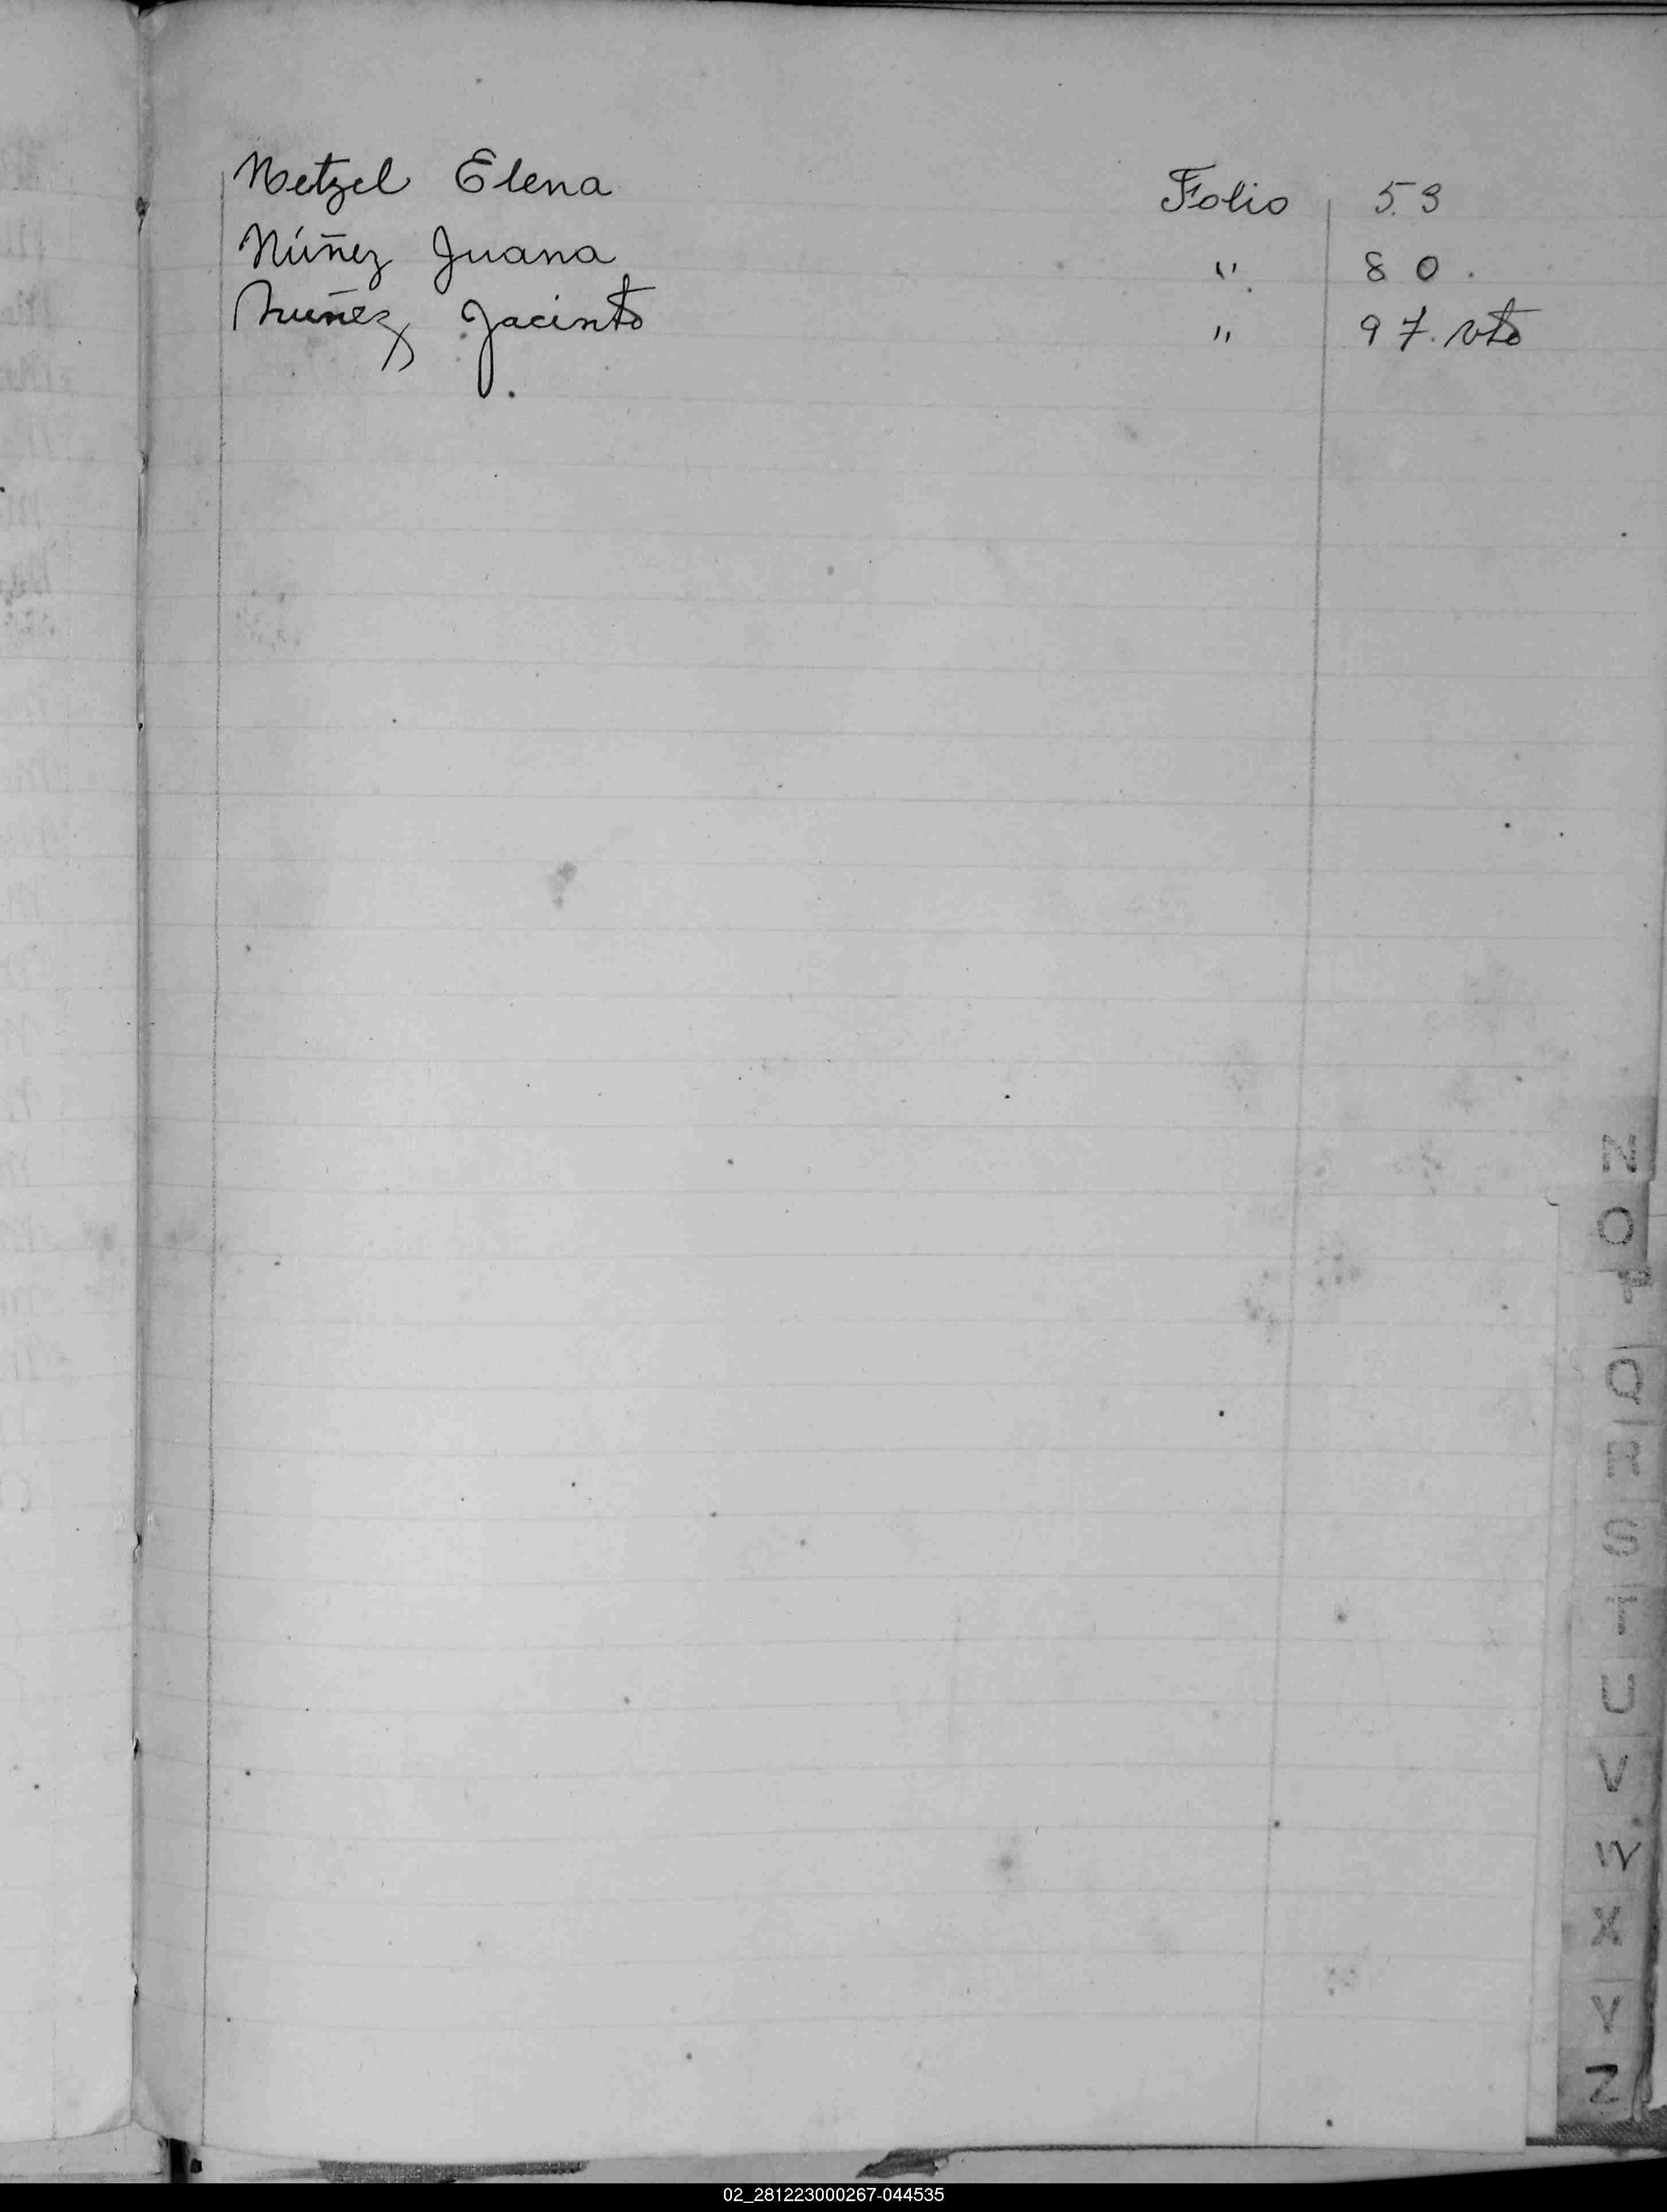 Netzel Elena Folio 53
Núñez Juana " 80.
Nuñez Jacinto " 97. vto
N
O
P
Q
R
S
T
U
V
W
X
Y
Z
02_281223000267-044535